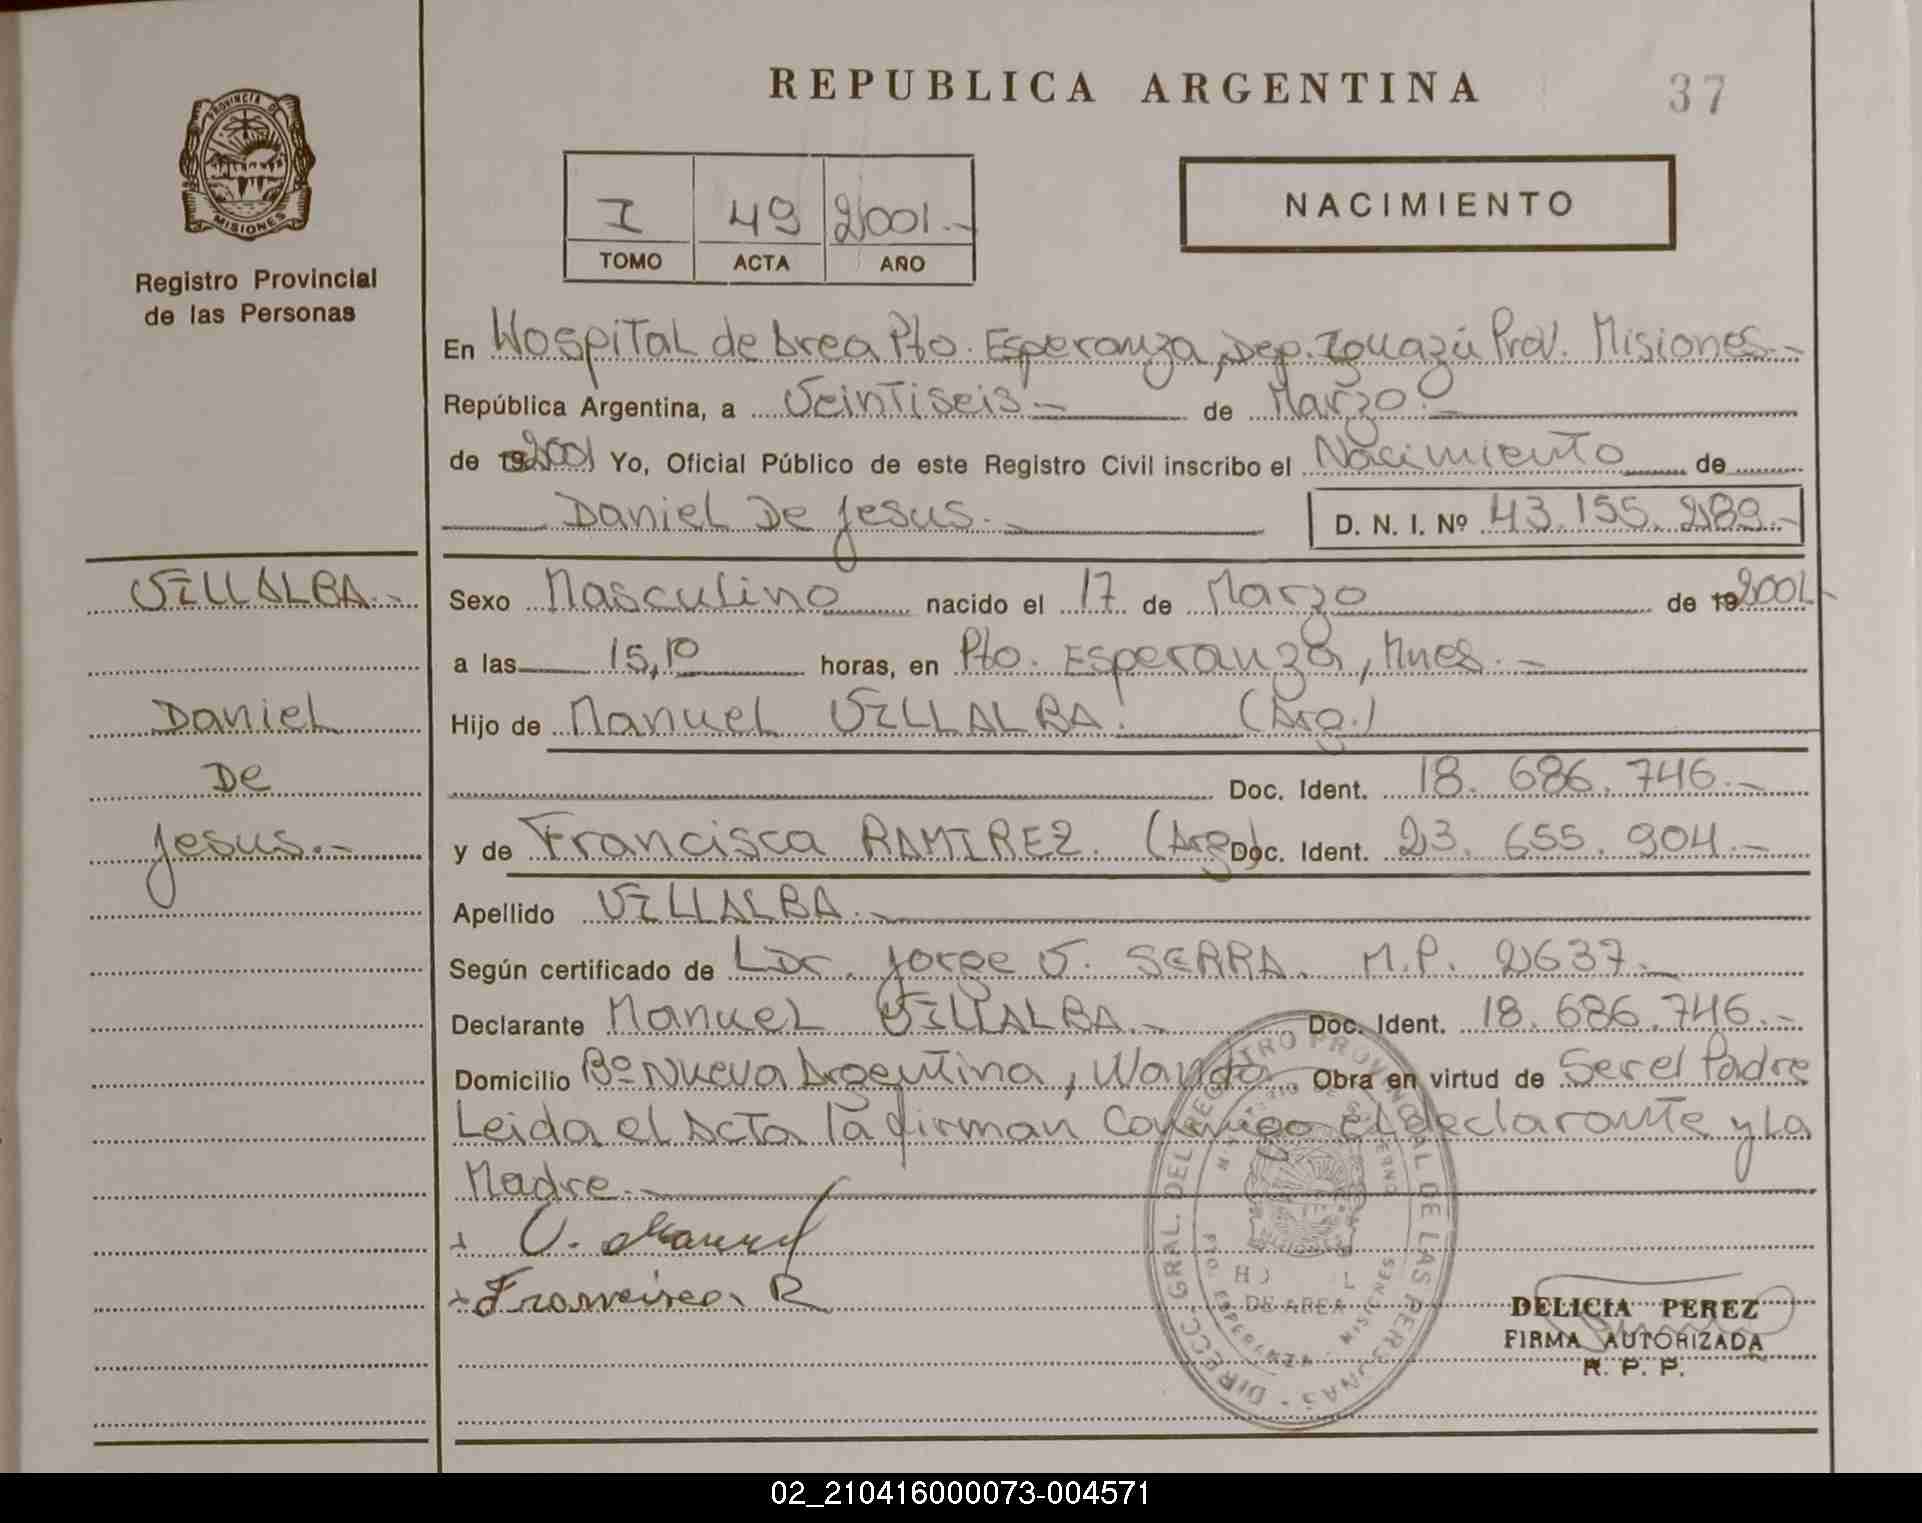 REPUBLICA ARGENTINA
37
PROVINCIA D
MISIONES
Registro Provincial
de las Personas
I 49 2001.-
TOMO ACTA AÑO
NACIMIENTO
En Hospital de Area Pto. Esperanza, Dep. Iguazú Prov. Misiones.-
República Argentina, a Veintiseis.- de Marzo.-
de 19 2001 Yo, Oficial Público de este Registro Civil inscribo el Nacimiento de
Daniel De Jesus.- D. N. I. Nº 43.155.289.-
VILLALBA.-
Daniel
De
Jesus.-
Sexo Masculino nacido el 17 de Marzo de 19 2001.-
a las 15,10 horas, en Pto. Esperanza, Mnes.-
Hijo de Manuel VILLALBA. (Arg.)
Doc. Ident. 18.686.746.-
y de Francisca RAMIREZ. (Arg.) Doc. Ident. 23.655.904.-
Apellido VILLALBA.-
Según certificado de Dr. Jorge V. SERRA. M.P. 2637.-
Declarante Manuel VILLALBA.- Doc. Ident. 18.686.746.-
Domicilio Bº Nueva Argentina, Wanda. Obra en virtud de Ser el Padre
Leida el Acta la firman conmigo el declarante y La
Madre.-
V. Manuel
Francisca R
DIRECC. GRAL. DEL REGISTRO PROVINCIAL DE LAS PERSONAS
MISIONES
DE AREA
PTO. ESPERANZA - MISIONES
DELICIA PEREZ
FIRMA AUTORIZADA
R. P. P.
02_210416000073-004571